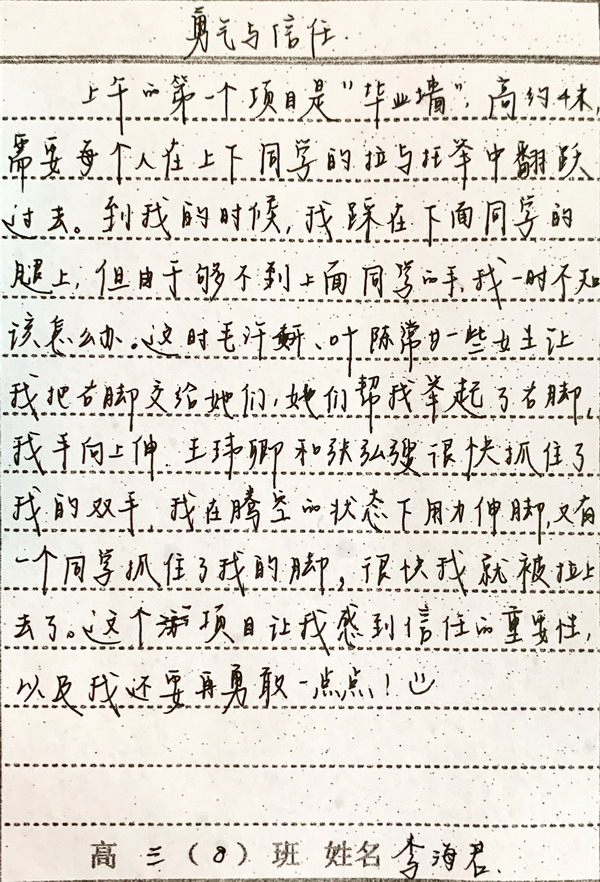 勇气与信任.
上午的第一个项目是“毕业墙”,高约4米,
需要每个人在上下同学的拉与托举中翻跃
过去。到我的时候,我踩在下面同学的
腿上,但由于够不到上面同学的手,我一时不知
该怎么办。这时毛汗妍、叶陈常廿一些女生让
我把右脚交给她们,她们帮我举起了右脚,
我手向上伸 王玮卿和张弘弢很快抓住了
我的双手,我在腾空的状态下用力伸脚,又有
一个同学抓住了我的脚,很快我就被拉上
去了。这个项目让我感到信任的重要性,
以及我还要再勇敢一点点!
高三(8)班 姓名 李海君.